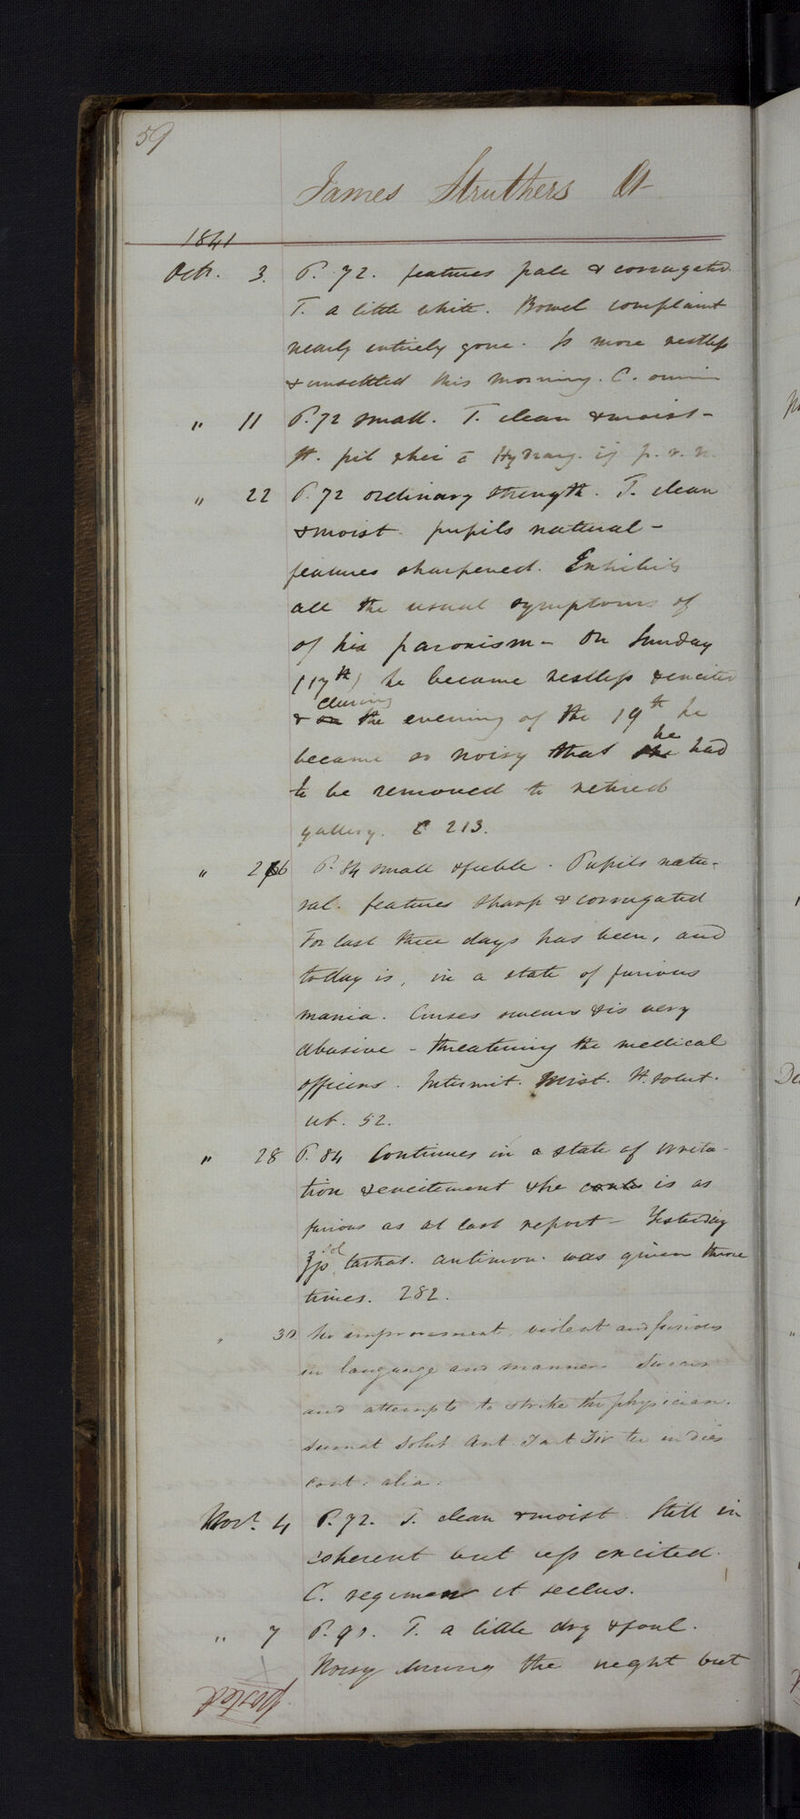 59
James Struthers
1841
Octr. 3. P. 72. features pale & corrugated.
T. a little white. Bowel complaint
nearly entirely gone. Is more restless
& unsettled this morning. C. omnia
" 11 P. 72 small. T. clean & moist-
pil rhei c̄ Hydrarg. ij p. r. n.
" 22 P. 72 ordinary strength. T. clean
& moist. pupils natural -
features sharpened. Exhibits
all the usual symptoms of
of his paroxism - On Sunday
(17th) he became restless & excited
during
& on the evening of the 19th he
he
became so noisy that she had
to be removed to retired
gallery. C 213.
" 26 P. 84 small & feeble. Pupils natu-
ral. features sharp & corrugated
For last three days has been, and
today is, in a state of furious
mania. Curses swears & is very
abusive - threatening the medical
officers. Intermit. Mist. H. solut.
ut. 52.
" 28 P. 84 Continues in a state of irrita-
tion & excitement & he is as
furious as at last report - Yesterday
sol
tartrat. antimon. was given three
times. 282.
" 30 No improvement, violent and furious
in language and manner. Swears
and attempts to strike the physician.
Sumat Solut Ant Tart ter in dies
Cont. alia.
Novr. 4 P. 72. T. clean & moist. Still in
coherent but less excited.
C. regimen et seclus.
" 7 P. 90. T. a little dry & foul.
Noisy during the night but
posted